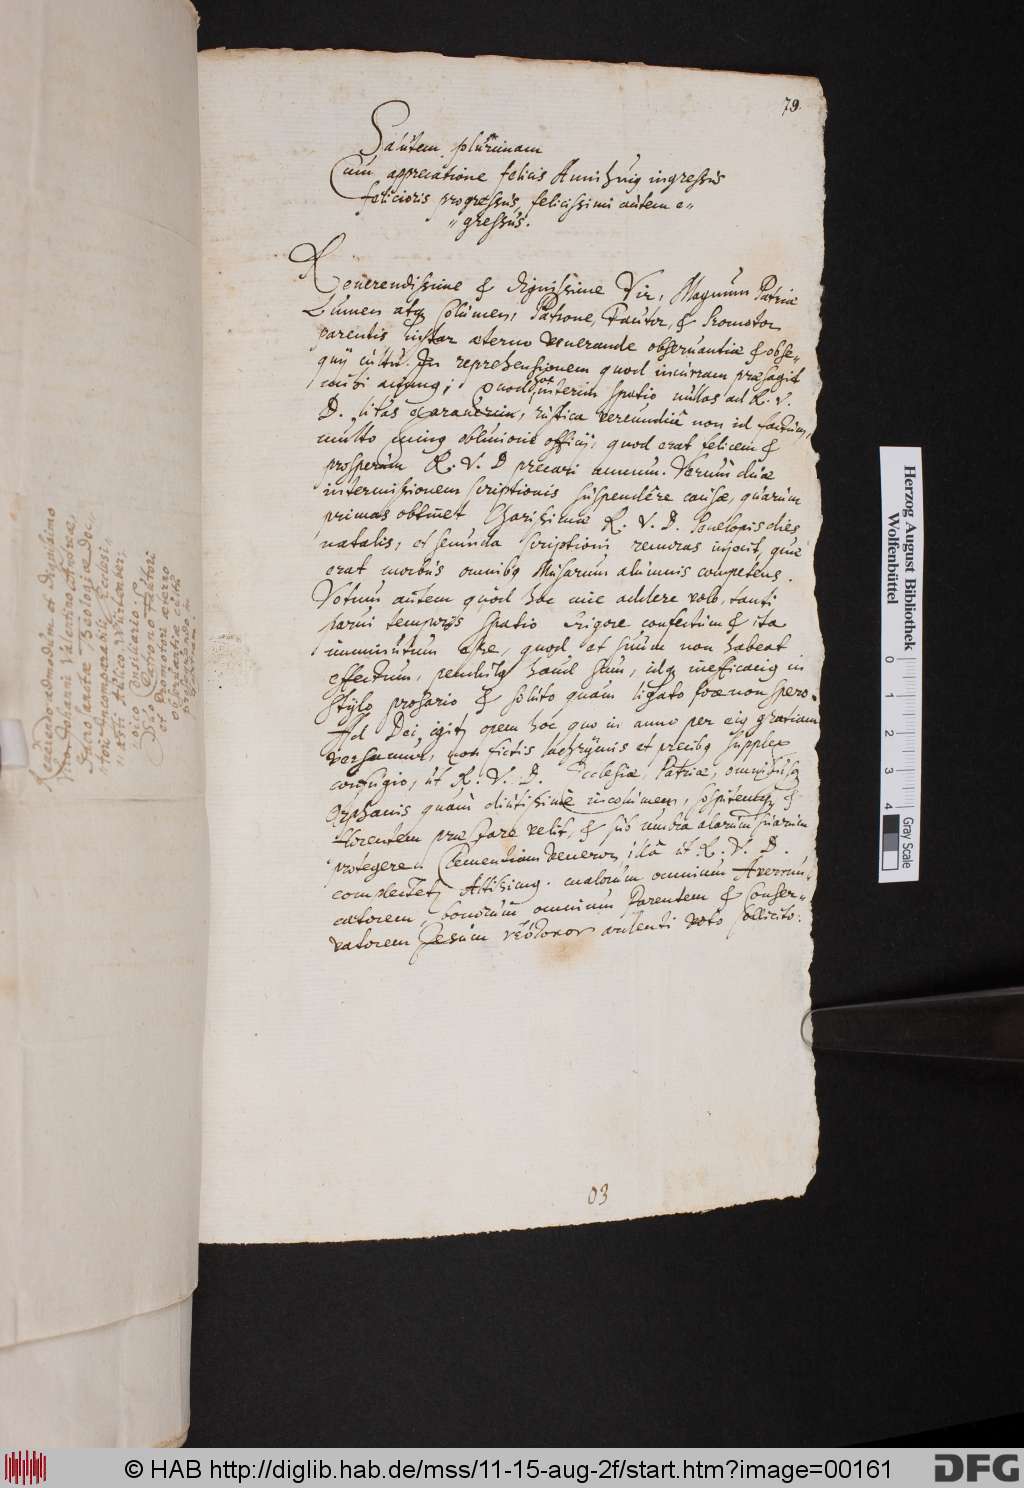 79.
Salutem plurimam
Cum appreciatione felicis Anni hujus ingressus
felicioris progressus, felicissimi autem e„
„gressus.
Reverendissime & dignissime Vir, Magnum Patriæ
Lumen atq Columen, Patrone, Fautor, & Promotor
parentis instar æterno venerande observantiæ & obse„
quij cultu. In reprehensionem quod incurram præsagit
animus; Quod hoc interim spatio nullas ad R. V.
D. litas exaraverim, rustica verecundia non id factum,
multo minus oblivione officij, quod erat felicem &
prosperum R. V. D precari annum. Verum duæ
intermissionem scriptionis suspendêre causæ, quarum
primas obtinet Charissimæ R. V. D. Penelopis dies
natalis, et secunda scriptioni remoras injecit, quæ
erat morbus omnibq Musarum alumnis competens.
Votum autem quod hoc nunc addere volo, tanti
spatio frigore confectum & ita
imminutum a se, quod et suum non habeat
effectum, haud sum, idq inefficacius in
stylo prosario & soluto quam ligato fore non spero.
Ad Dei igitr opem hoc quo in anno per ejus gratiam
versamur, non fictis lachrymis et precibq supplex
confugio, ut R. V. D. Ecclesiæ, Patriæ, omnibusq
Orphanis quam diutissime incolumem, sospitemq &
florentem præstare velit, & sub umbra alarum suarum
protegere. Clementiam veneror illa ut R. V. D.
complectetr Altissimus. malorum omnium Averrun„
catorem, bonorum omnium Parentem & Conser„
vatorem Jesum veneror ardenti voto sollicito.
03
Reverendo admodum et dignissimo
Viro Johanni Valentino Andreæ,
Sacro sanctæ Theologiæ Doc„
tori Incomparabili, Ecclesi„
Aulico Würtenber„
gico Consiliario.
Dno Patrono Fautori
et Promotori æterno
observantiæ cultu
Herzog August Bibliothek
Wolfenbüttel
0 1 2 3 4
Gray Scale
© HAB http://diglib.hab.de/mss/11-15-aug-2f/start.htm?image=00161
DFG